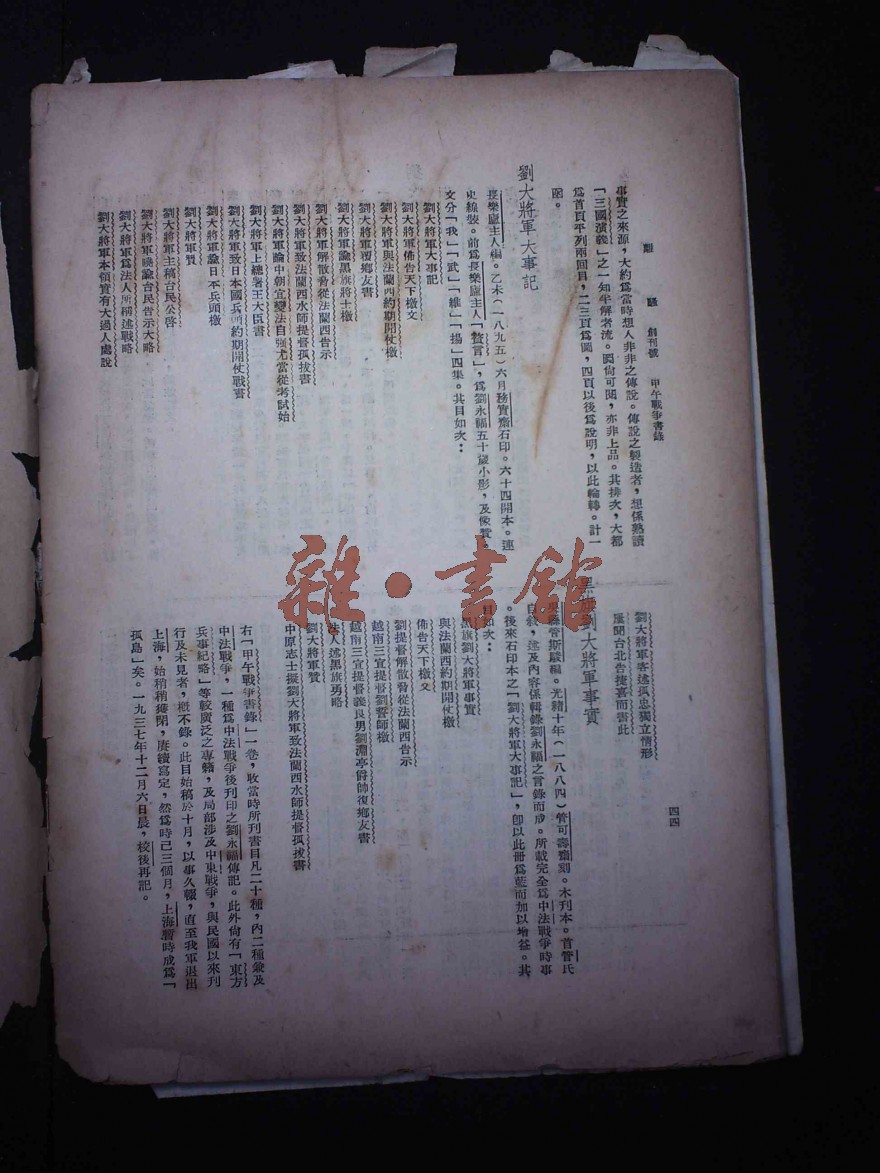 離騷 創刊號 甲午戰爭書錄
四四
事實之來源，大約爲當時想入非非之傳說。傳說之製造者，想係熟讀
「三國演義」之一知半解者流。圖尙可閱，亦非上品。其排次，大都
爲首頁平列兩回目，二三頁爲圖，四頁以後爲說明，以此輪轉。計一
函。
劉大將軍大事記
長樂廬主人編。乙未（一八九五）六月務實齋石印。六十四開本。連
史線裝。前爲長樂廬主人「贅言」，爲劉永福五十歲小影，及像贊。
文分「我」「武」「維」「揚」四集。其目如次：
劉大將軍大事記
劉大將軍佈告天下檄文
劉大將軍與法蘭西約期開仗檄
劉大將軍覆鄉友書
劉大將軍諭黑旗將士檄
劉大將軍解散脅從法蘭西告示
劉大將軍致法蘭西水師提督孤拔書
劉大將軍論中朝宜變法自強尤當從考試始
劉大將軍上總署王大臣書
劉大將軍致日本國兵頭約期開仗戰書
劉大將軍諭日本兵頭檄
劉大將軍贊
劉大將軍主稿台民公啓
劉大將軍曉諭台民告示大略
劉大將軍爲法人所稱述戰略
劉大將軍本領實有大過人處說
劉大將軍客述孤忠獨立情形
屢聞台北吿捷喜而書此
黑旗劉大將軍事實
管斯駿編。光緒十年（一八八四）管可壽齋刻。木刊本。首管氏
自敍，述及內容係輯錄劉永福之言錄而成。所載完全爲中法戰爭時事
。後來石印本之「劉大將軍大事記」，卽以此冊爲藍而加以增益。其
目如次：
黑旗劉大將軍事實
與法蘭西約期開仗檄
佈告天下檄文
劉提督解散脅從法蘭西告示
越南三宣提督劉誓師檄
越南三宣提督義良男劉淵亭爵帥復鄉友書
法人述黑旗勇略
劉大將軍贊
中原志士擬劉大將軍致法蘭西水師提督孤拔書
右「甲午戰爭書錄」一卷，收當時所刊書目凡二十種，內二種兼及
中法戰爭，一種爲中法戰爭後刊印之劉永福傳記。此外尙有「東方
兵事紀略」等較廣泛之專籍，及局部涉及中東戰爭，與民國以來刊
行及未見者，槪不錄。此目始稿於十月，以事久輟，直至我軍退出
上海，始稍稍獲閒，賡續寫定，然爲時已三個月，上海暫時成爲「
孤島」矣。一九三七年十二月六日晨，校後再記。
雜·書館